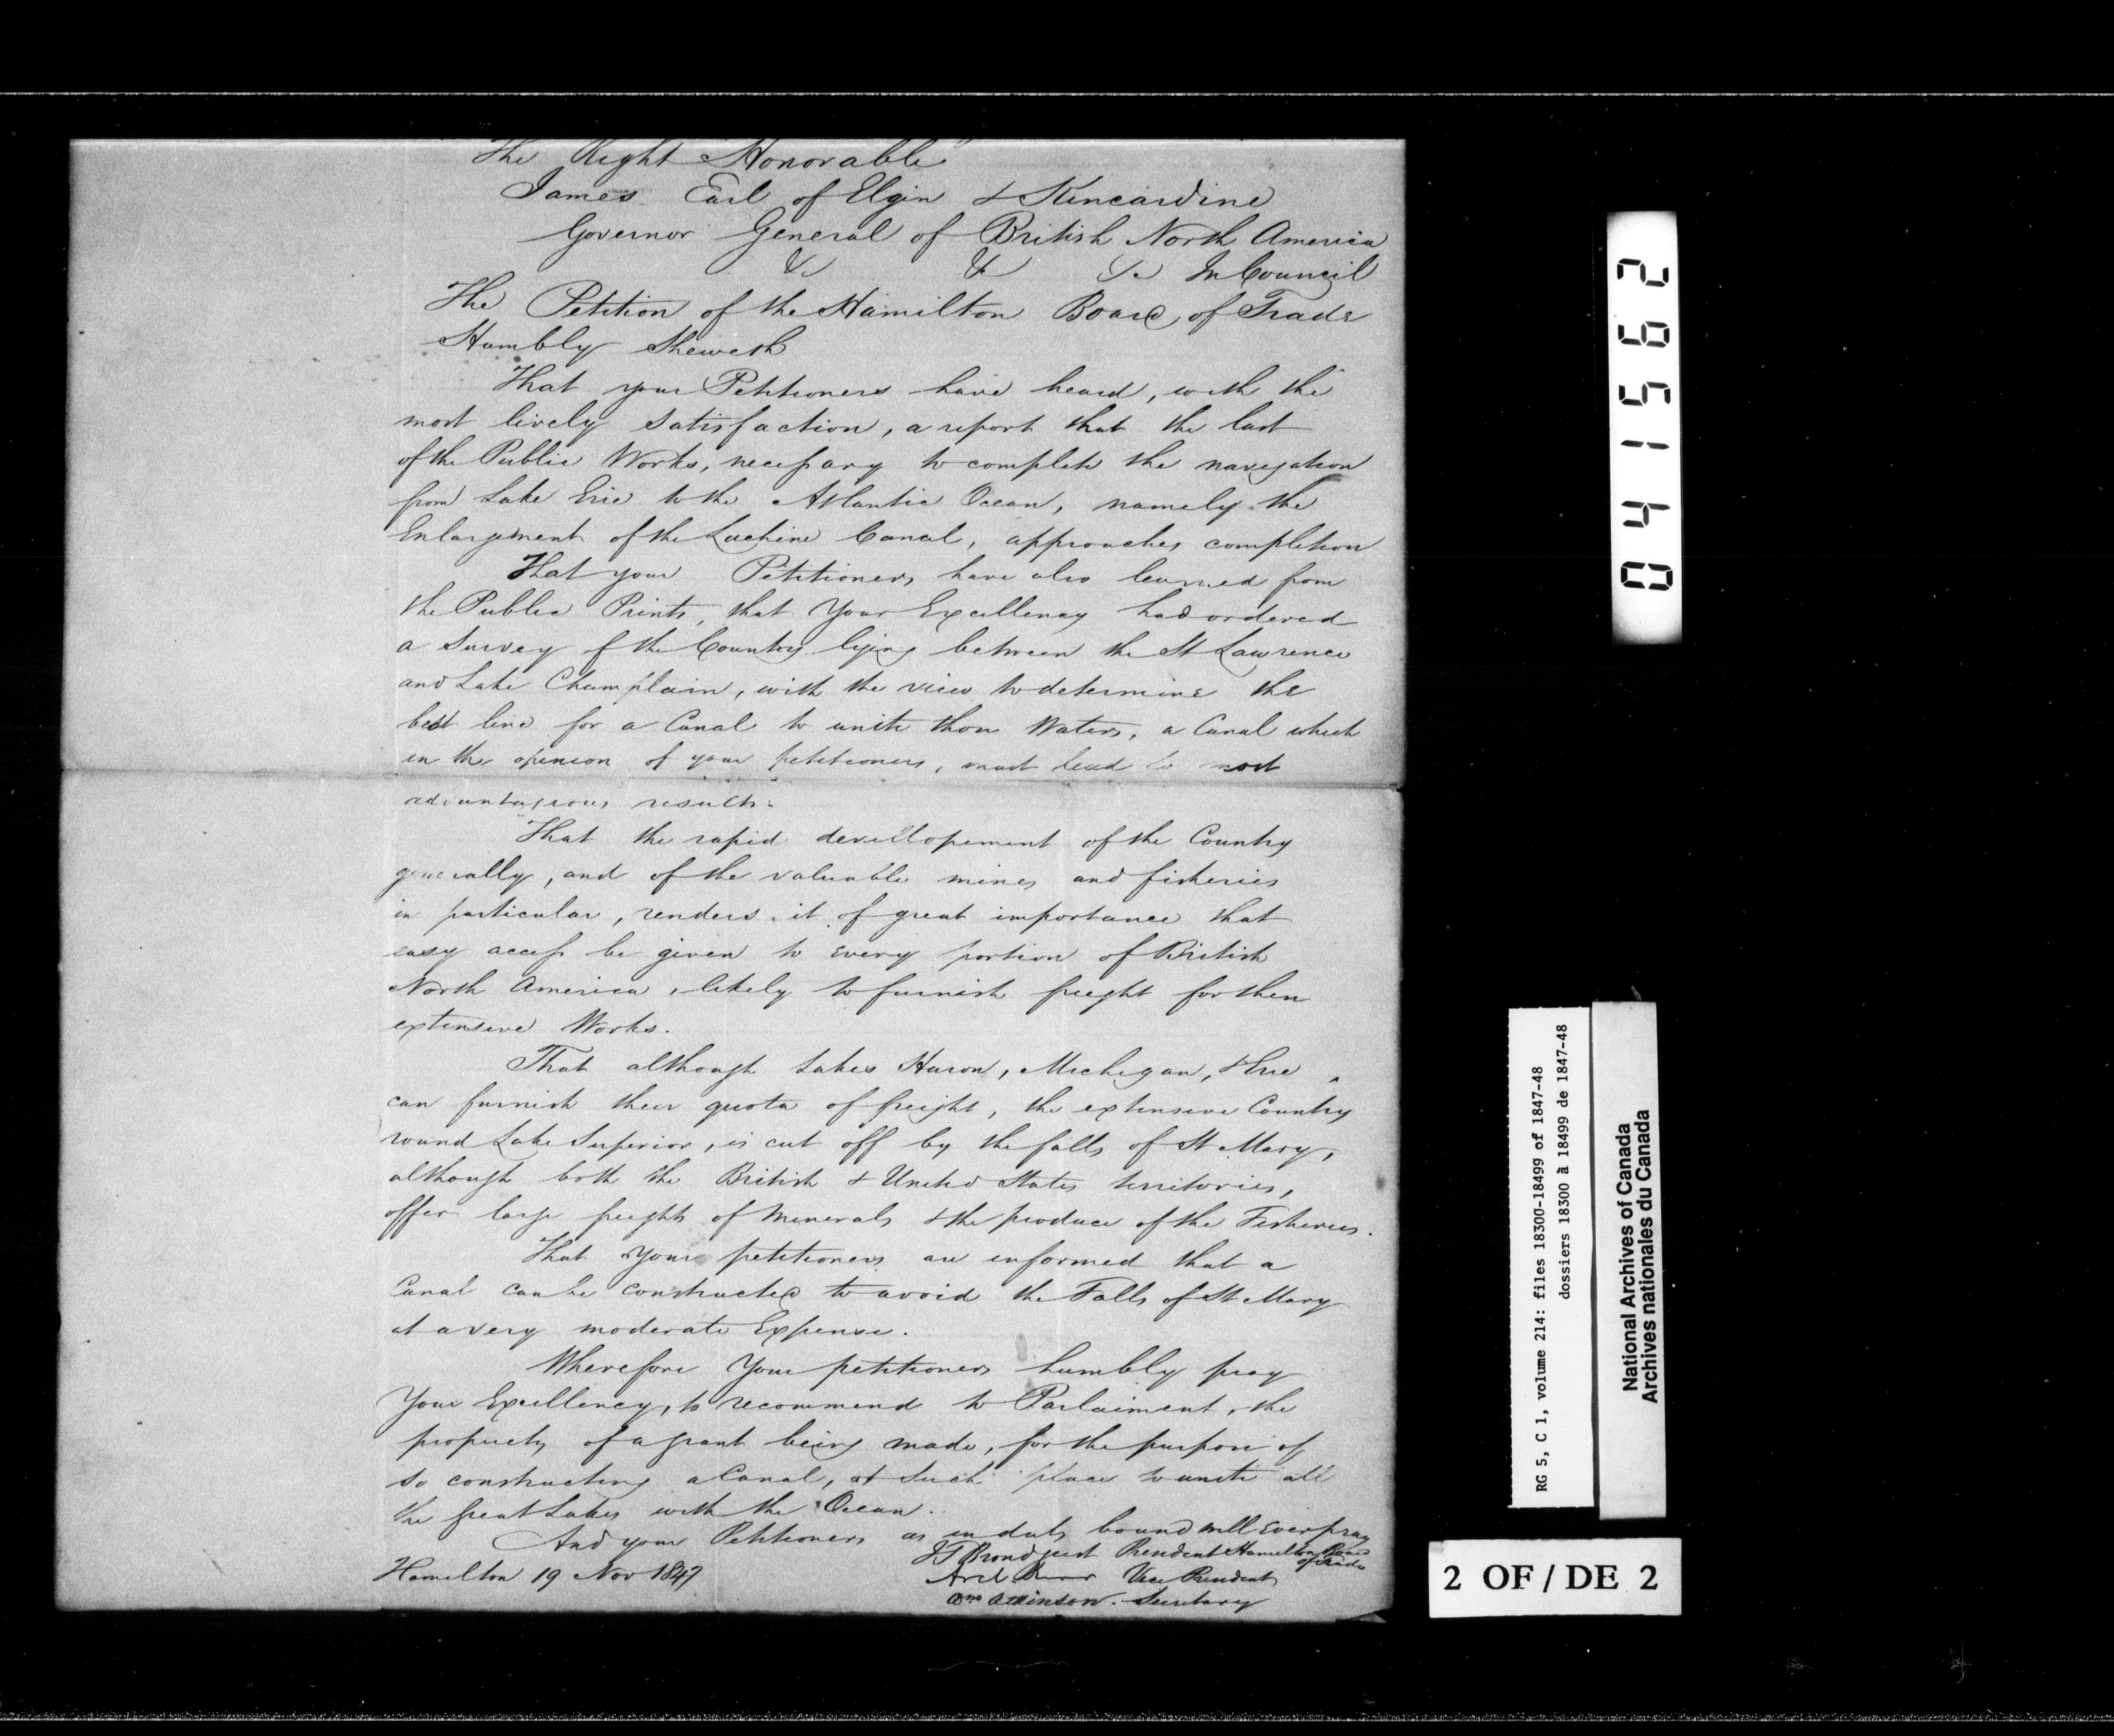 The Right Honorable
James Earl of Elgin & Kincardine
Governor General of British North America
&c &c &c In Council
The Petition of the Hamilton Board of Trade
Humbly Sheweth
That your Petitioners have heard, with the
most lively satisfaction, a report that the last
of the Public Works, necessary to complete the navigation
from Lake Erie to the Atlantic Ocean, namely the
Enlargement of the Lachine Canal, approaches completion
That your Petitioners have also learned from
the Public Prints, that Your Excellency had ordered
a Survey of the Country lying between the St Lawrence
and Lake Champlain, with the view to determine the
best line for a Canal to unite those Waters, a Canal which
in the opinion of your petitioners, must lead to most
advantageous results.
That the rapid devellopement of the Country
generally, and of the valuable mines and fisheries
in particular, renders it of great importance that
easy access be given to every portion of British
North America, likely to furnish freight for these
extensive Works.
That although Lakes Huron, Michegan, & Erie
can furnish their quota of freight, the extensive Country
round Lake Superior, is cut off by the falls of St Mary,
although both the British & United States territories,
offer large freights of Minerals & the produce of the Fisheries.
That your petitioners are informed that a
Canal can be constructed to avoid the Falls of St Mary
at a very moderate Expense.
Wherefore Your petitioners humbly pray
Your Excellency, to recommend to Parlaiment, the
propriety of a grant being made, for the purpose of
so constructing a Canal, at such place to unite all
the great Lakes with the Ocean.
And your Petitioners as in duty bound will Ever pray
Hamilton 19 Nov 1847
J T Brondgeest President Hamilton Board
of Trade
Vice President
Atkinson. Secretary
041562
RG 5, C 1, volume 214: files 18300-18499 of 1847-48
dossiers 18300 à 18499 de 1847-48
National Archives of Canada
Archives nationales du Canada
2 OF / DE 2